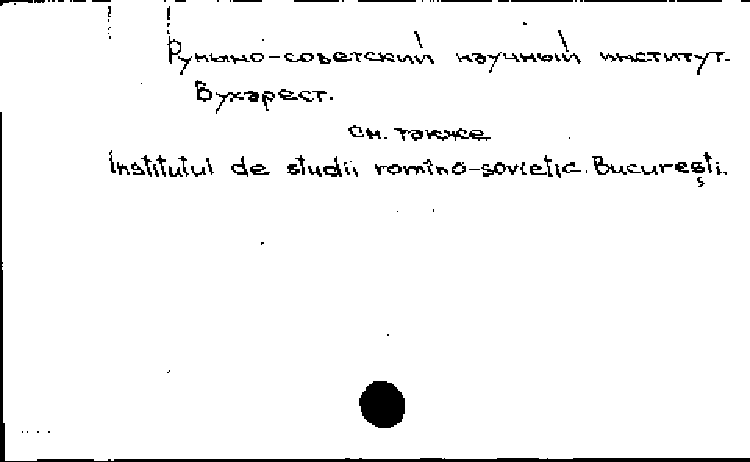 Румыно-советский научный институт.
Бухарест.
см. также
Institutul de studii romîno-sovietic. Bucureşti.